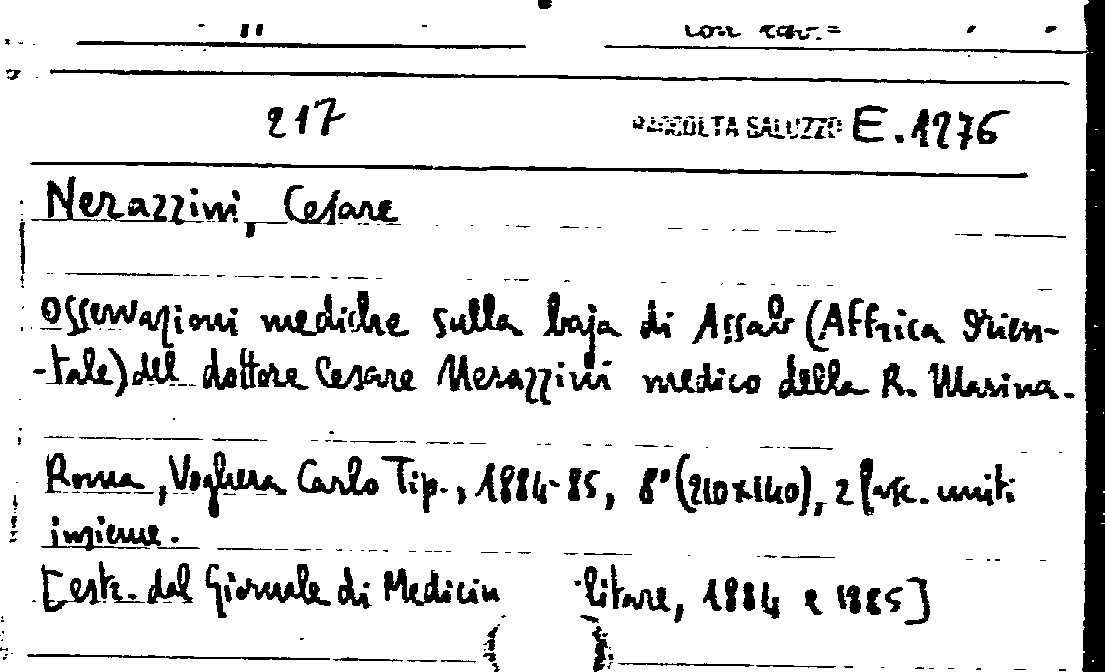 217 RACCOLTA SALUZZO E.1276
Nerazzini, Cesare
Osservazioni mediche sulla baja di Assab (Affrica Orien-
-tale) del dottore Cesare Nerazzini medico della R. Marina.
Roma, Voghera Carlo Tip., 1884-85, 8° (210x140), 2 fasc. uniti
insieme.
[estr. dal Giornale di Medicin litare, 1884 e 1885]